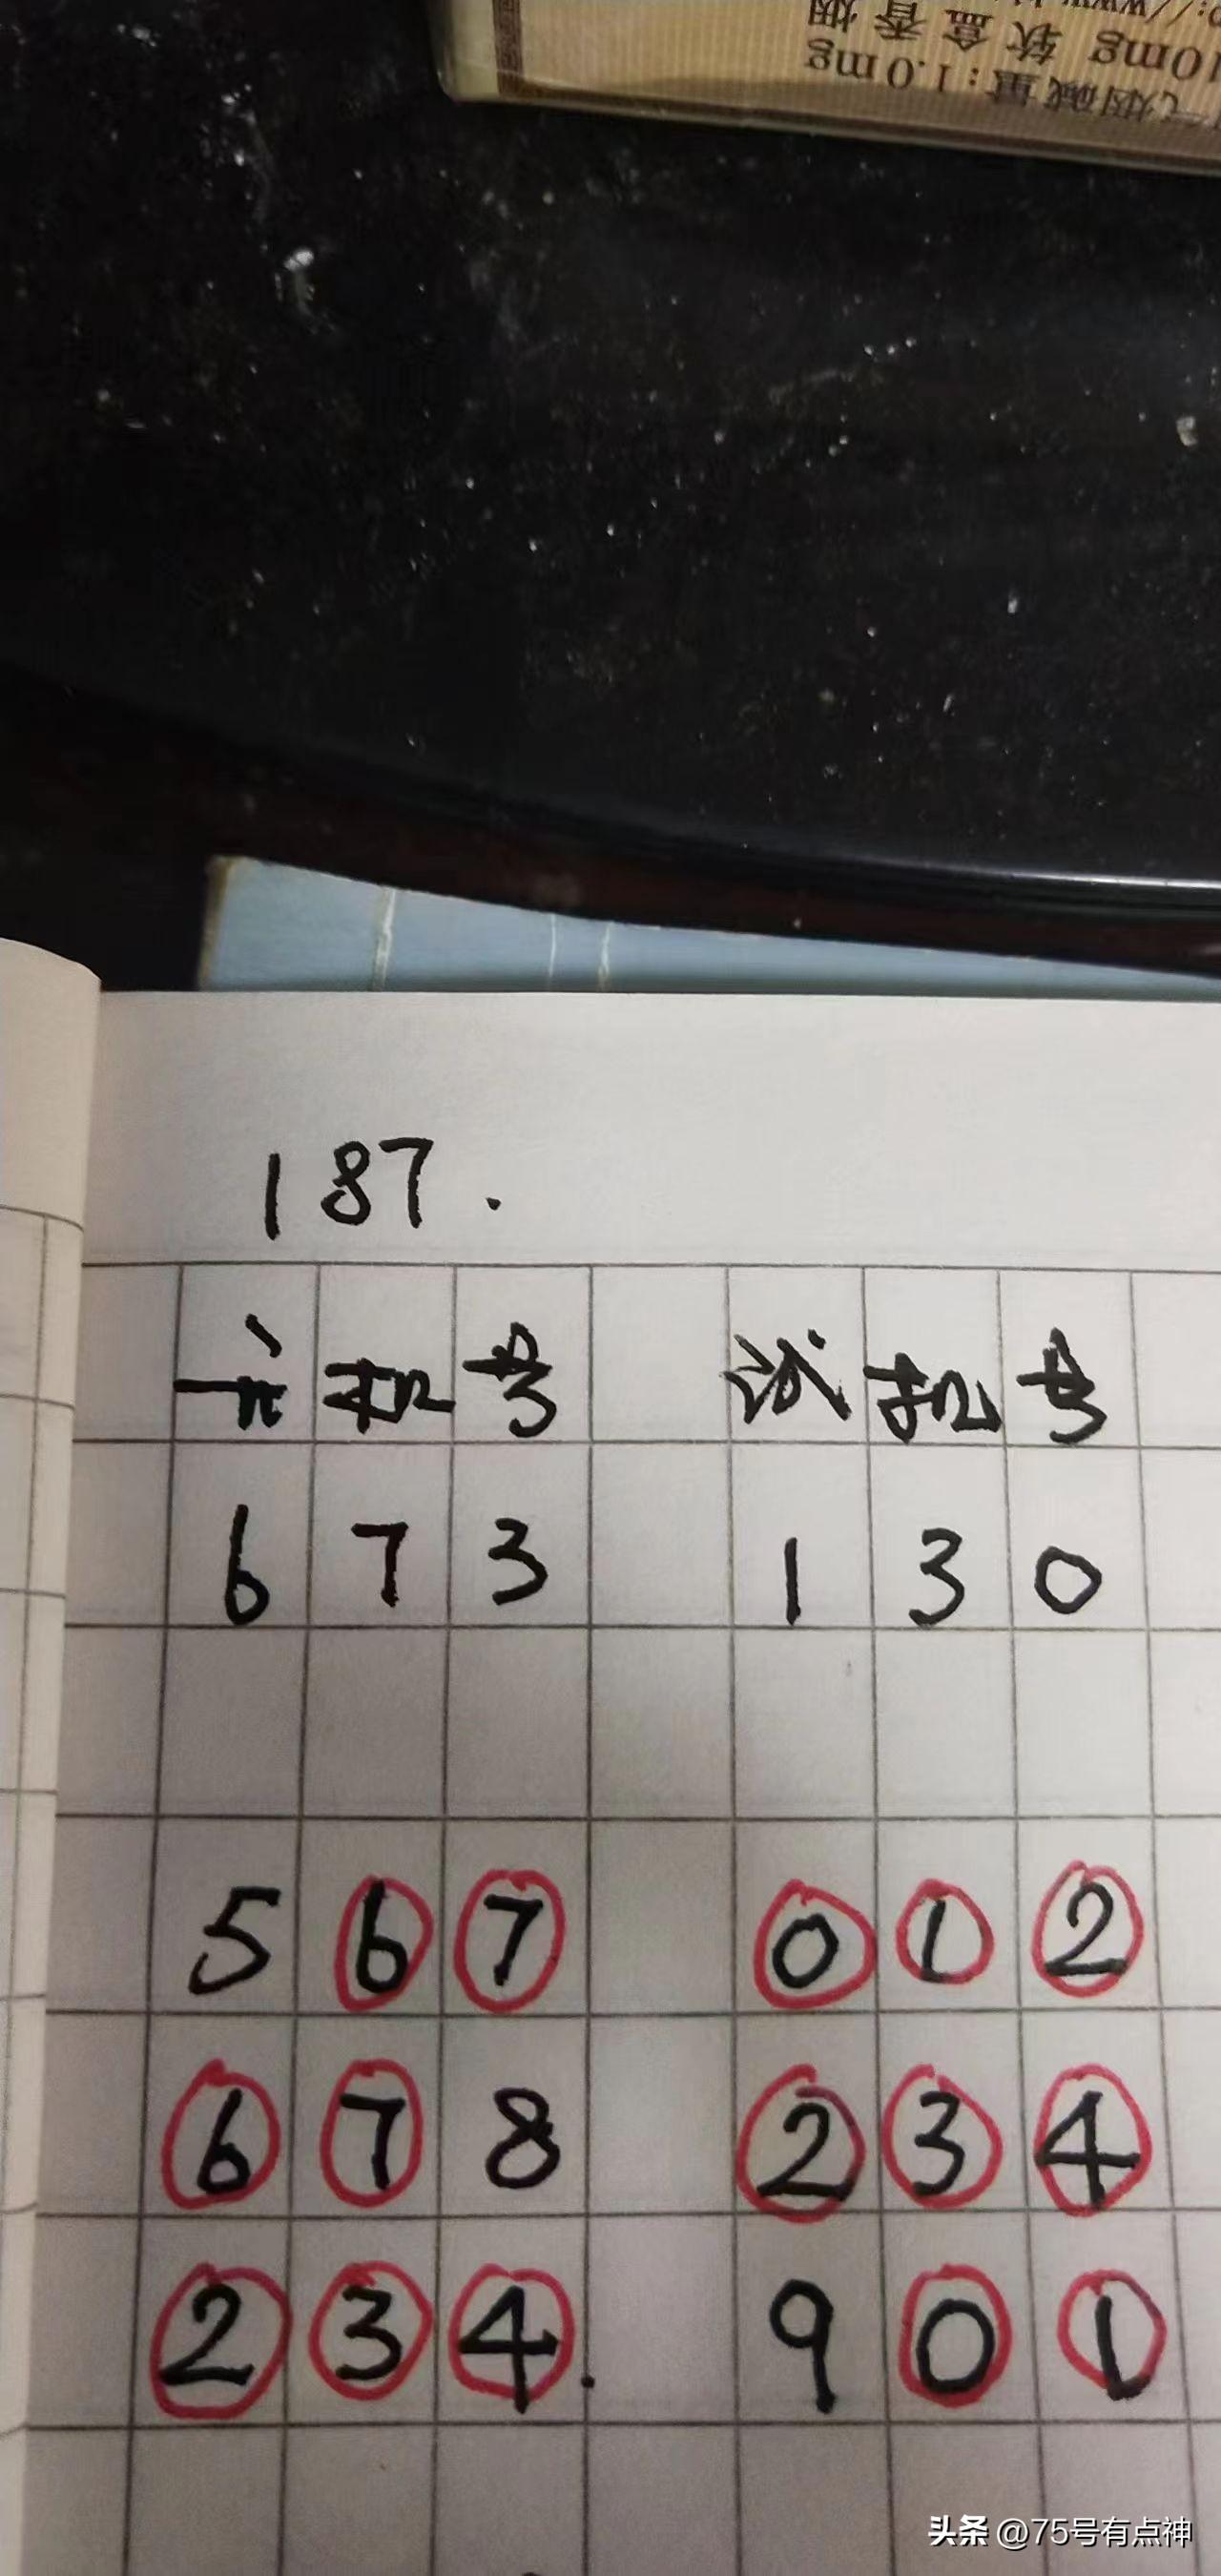 软盒香烟
10mg
烟碱量:1.0mg
187.
开机号 试机号
6 7 3 1 3 0
5 6 7 0 1 2
6 7 8 2 3 4
2 3 4. 9 0 1
头条 @75号有点神